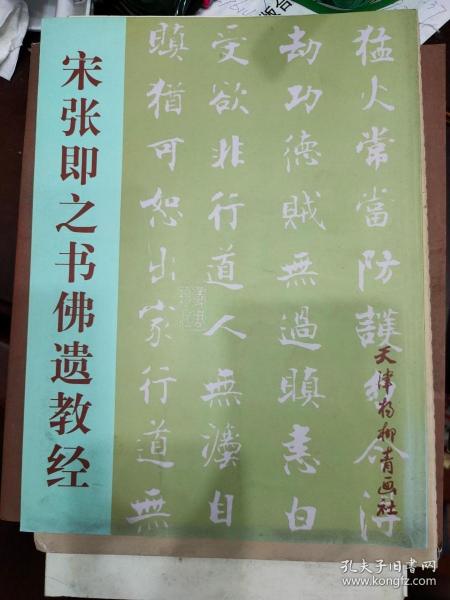 宋张即之书佛遗教经
猛火常當防護勿令得
劫功德賊無過瞋恚白
受欲非行道人無法自
瞋猶可恕出家行道無
天津杨柳青画社
孔夫子旧书网
www.kongfz.com